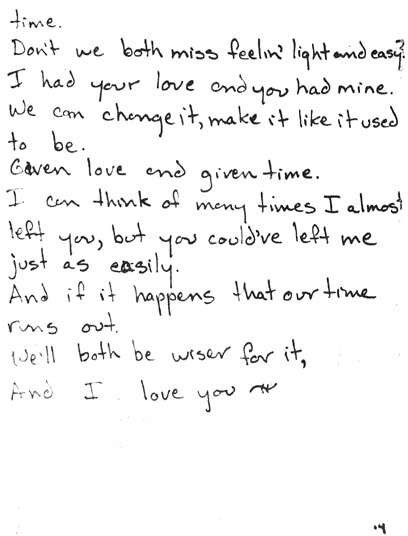 time.
Don't we both miss feelin' light and easy?
I had your love and you had mine.
We can change it, make it like it used
to be.
Given love and given time.
I can think of many times I almost
left you, but you could've left me
just as easily.
And if it happens that our time
runs out.
We'll both be wiser for it,
And I love you
.4